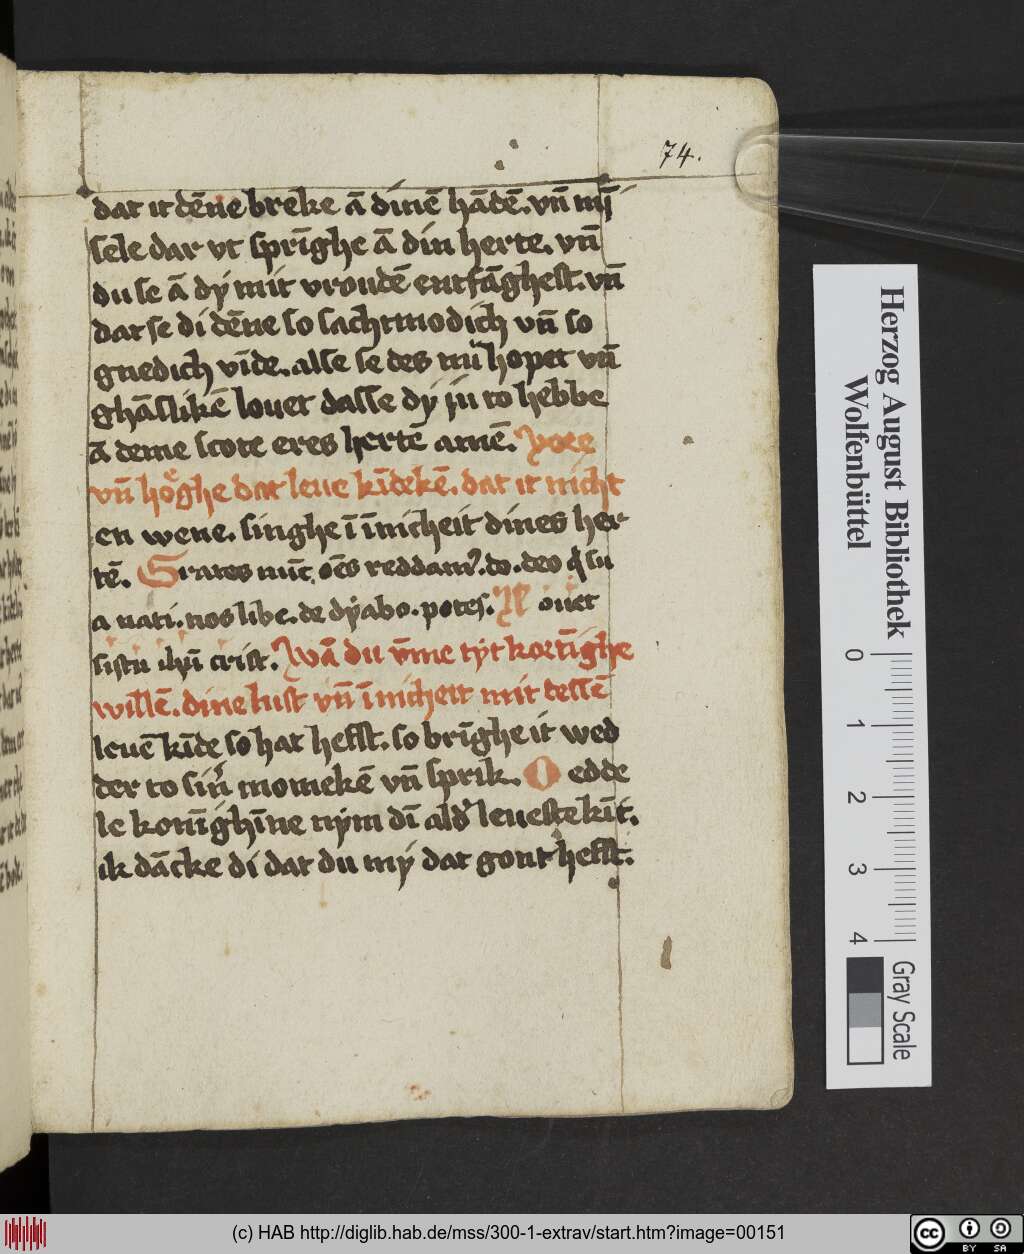 74.
dat it dēne breke ā dinē hādē. vn̄ mȳ
sele dar vt sprīghe ā din herte. vn̄
du se ā dy mit vroudē entfāghest. vn̄
dat se di dēne so sachtmodich vn̄ so
gnedich vīde. alse se des nu hopet vn̄
ghāslikē louet dasse dy ju to hebbe
ā deme scote eres hertē amē.
vn̄ hoͤghe dat leue kīdekē. dat it nicht
en wene. singhe ī īnicheit dines her
tē. Grates nūc oēs reddam9. do. deo q su
a nati. nos libe. de dyabo. potes. N ouet
sistu ihū crist. Wā du v̄me tyt kortīghe
willē. dine lust vn̄ īnicheit mit dessē
leuē kīde so hat hefst. so brīghe it wed
der to sin momekē vn̄ sprik. O edde
le konīghīne nym dī ald leueste kīt.
ik dācke di dat du my dat gont hefst.
Herzog August Bibliothek
Wolfenbüttel
0
1
2
3
4
Gray Scale
(c) HAB http://diglib.hab.de/mss/300-1-extrav/start.htm?image=00151
cc BY SA